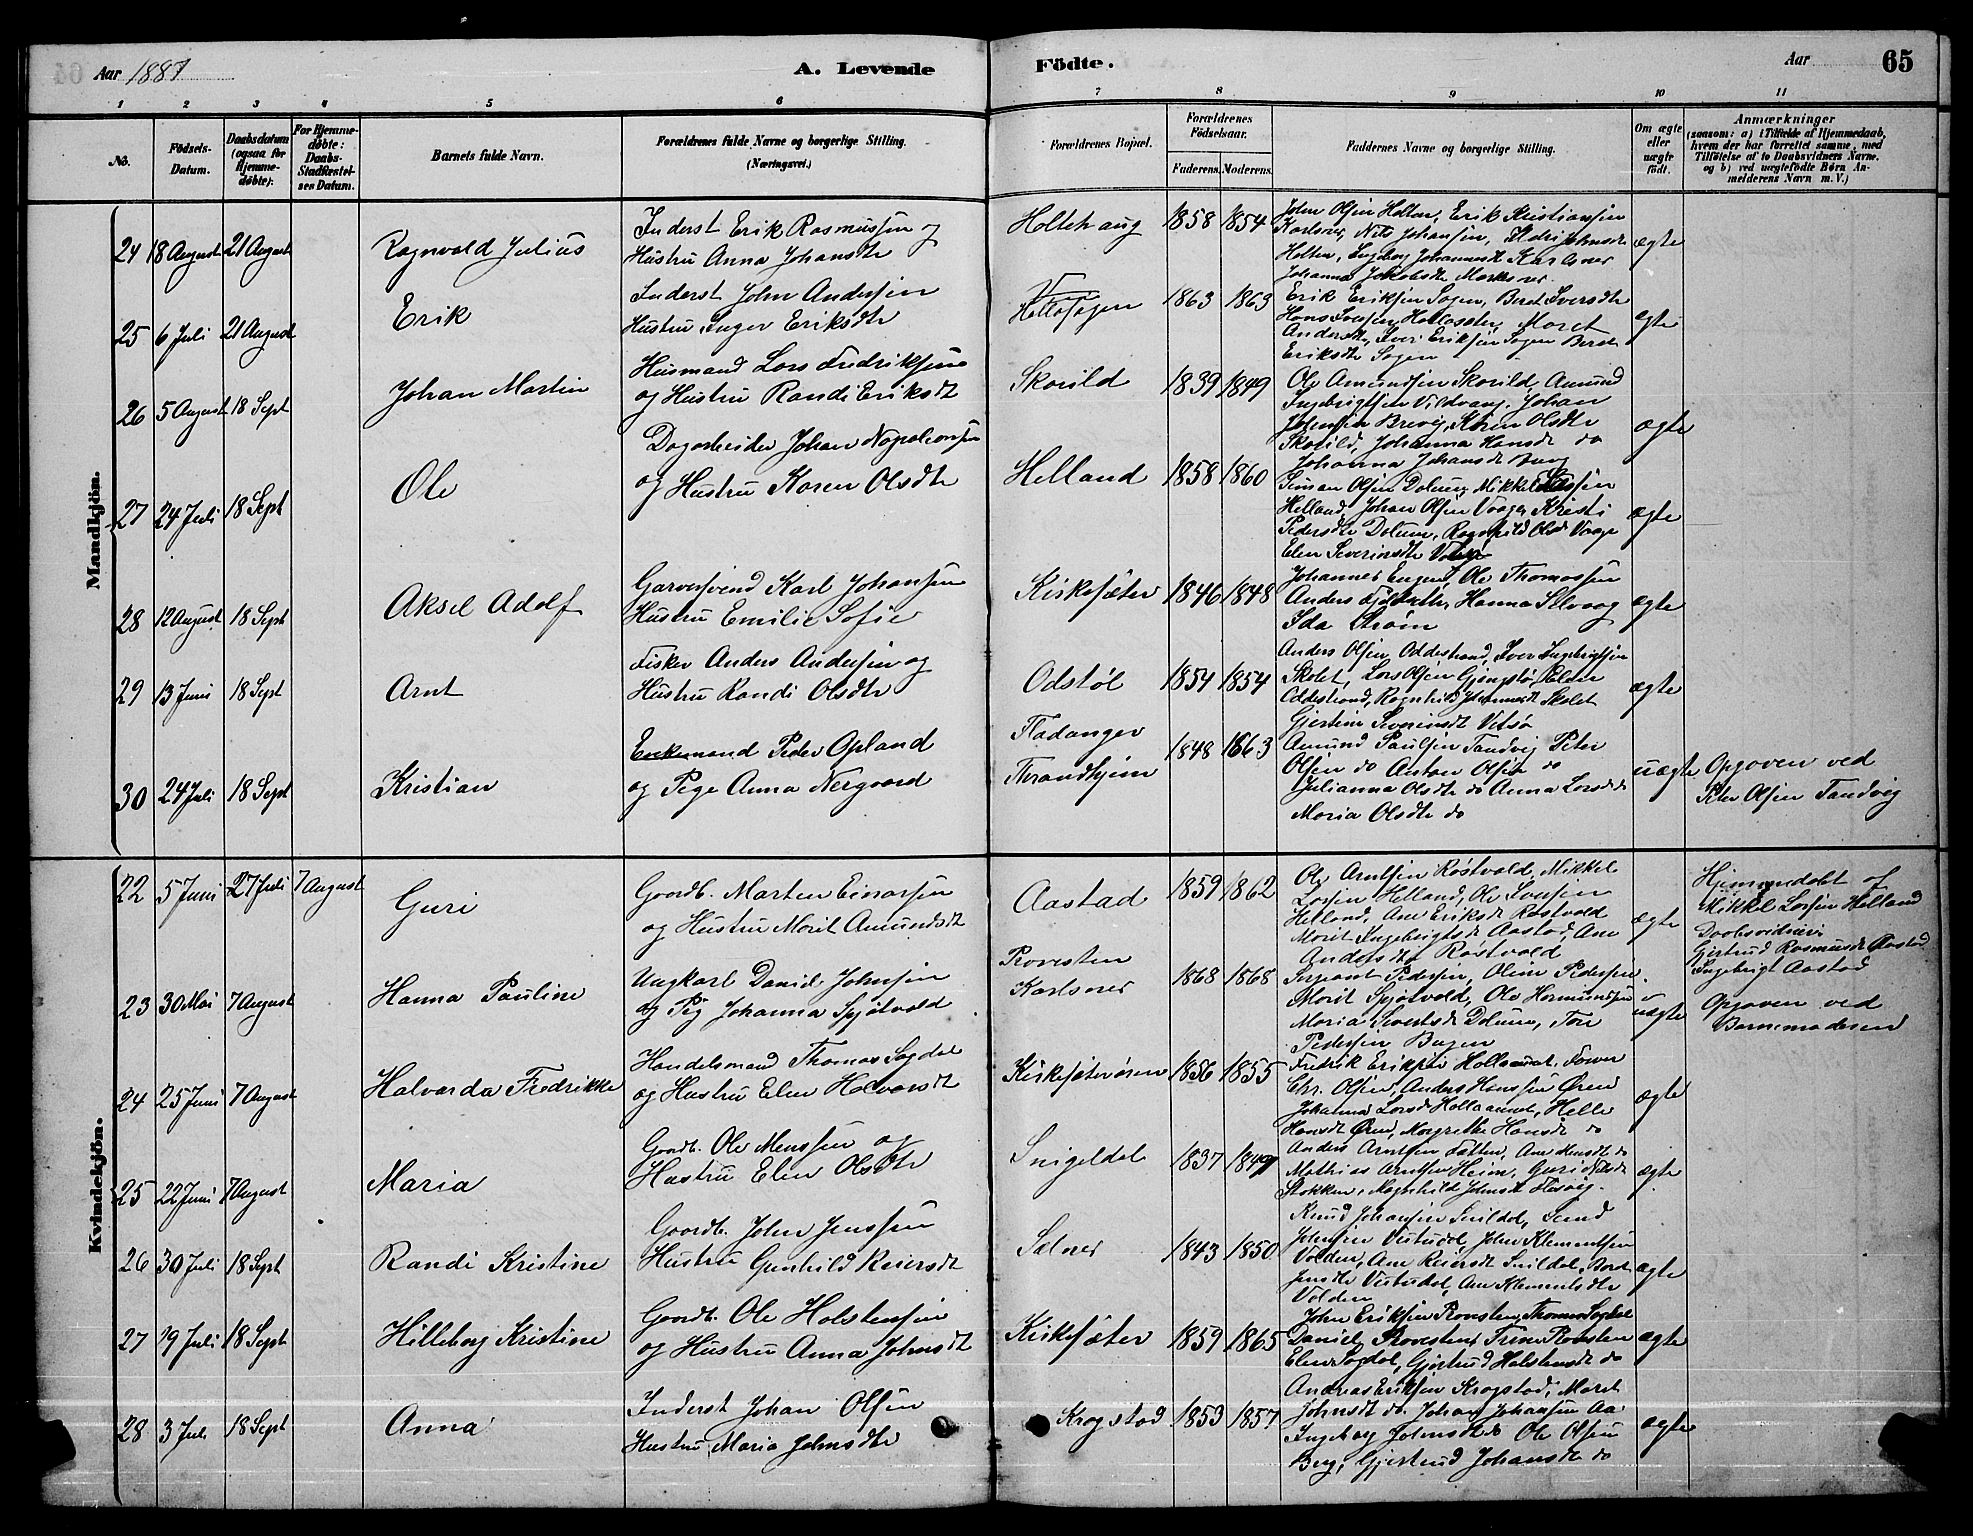 Aar 1887
A. Levende
Födte.
Aar
65
1 2 3 4 5 6 7 8 9 10 11
No.
Födsels-
Datum.
Daabsdatum
(ogsaa for
Hjemme-
døbte).
For Hjemme-
døbte:
Daabs-
Stadfæstel-
ses Datum.
Barnets fulde Navn.
Forældrenes fulde Navne og borgerlige Stilling.
(Næringsvei.)
Forældrenes Bopæl.
Forældrenes
Födselsaar.
Faderens. Moderens.
Faddernes Navne og borgerlige Stilling.
Om ægte
eller
uægte
født.
Anmærkninger
(saasom: a) i Tilfælde af Hjemmedaab,
hvem der har forrettet samme, med
Tilföielse af to Daabsvidners Navne.
og b) ved uægtefødte Börn An-
melderens Navn m. V.)
Mandkjön.
24 18 August 21 August Ragnvald Julius
Inderst Erik Rasmussen og
Hustru Anna Johansdtr
Holtehaug 1858 1854
John Olsen Holten, Erik Kristiansen
Karlsnes, Nils Johansen,
Holten, Ingebor Johannesdt Karlsnes
Johanna Jakobsdt
ægte
25 6 Juli 21 August Erik
Inderst John Andersen
Hustru Inger Eriksdtr
1863 1863
Erik Eriksen Sagen, Beret Iversdtr
Hans Iversen Maret
Andersdtr, Iver Eriksen Sagen Beret
Eriksdtr Sagen
ægte
26 5 August 18 Sept Johan Martin
Husmand Lars Fredriksen
og Hustru Randi Eriksdt
Skarild 1839 1849
Ole Amundsen Skarild, Amund
Ingebrigtsen Vildvang, Johan
Johnsen Brevig, Karen Olsdtr
Skarild, Johanna Hansdt do
Johanna Johansdt Berg
ægte
27 24 Juli 18 Sept Ole
Dagarbeider Johan Napoleonsen
og Hustru Karen Olsdtr
Helland 1858 1860
Simon Olsen Dolum, Mikkel Larsen
Helland, Johan Olsen Vaage, Kristi
Pedersdtr Dolum, Ragnhild Olsdt Vaage
Elen Severinsdtr
ægte
28 12 August 18 Sept Aksel Adolf
Garversvend Karl Johansen
Hustru Emilie Sofie
Kirkesæter 1846 1848
Johannes Eugen, Ole Thomassen
Anders Hanna Selvaag
Ida Strøm
ægte
29 13 Juni 18 Sept Arnt
Fisker Anders Andersen og
Hustru Randi Olsdtr
Odstøl 1854 1854
Anders Olsen Oddestrand, Iver Ingebrigtsen
Skolet, Lars Olsen Gjengstø,
Oddestrand, Ragnhild Johannesdt Skolet
Gjertine Severinsdt Vitsø
ægte
30 24 Juli 18 Sept Kristian
Enkemand Peder Opland
og Pige Anna Nergaard
Fladanger
Thrandhjem
1848 1863
Amund Paulsen Tandvig Peter
Olsen do Anton Olsen do
Julianna Olsdtr do Anna Larsdt do
Maria Olsdtr do
uægte
Opgaven ved
Peter Olsen Tandvig
Kvindekjön.
22 5 Juni 27 Juli 7 August Guri
Gaardb. Marten Einarsen
og Hustru Marit Amundsdt
Aastad 1859 1862
Ole Arntsen Røstvold, Mikkel
Larsen Helland, Ole Iversen
Helland, Ane Eriksdt Røstvold
Marit Ingebrigtsdt Aastad, Ane
Andersdtr Røstvold
ægte
Hjemmedøbt af
Mikkel Larsen Helland
Daabsvidner:
Gjertrud Rasmusdt Aastad
Ingebrigt Aastad
23 30 Mai 7 August Hanna Pauline
Ungkarl Daniel Johnsen
og Pig Johanna Sjøtvold
Provesten
Karlsnes
1868 1868
Sergeant Pedersen, Oline Pedersen
Marit Sjøtvold, Ole Hermundsen
Maria Sivertsdt Dolum, Tore
Pedersen Bugen
uægte
Opgaven ved
Barnemoderen
24 25 Juni 7 August Halvarda Fredrikke
Handelsmand Thomas Sogdal
og Hustru Elen Halvorsdt
Kirkesæterøren 1856 1855
Fredrik Eriksen Hollaunet, Farver
Chr. Olsen, Anders Hansen Øren
Johanna Larsdt Hollaunet, Helle
Hansdt Øren, Margrethe Hansdt do
ægte
25 22 Juni 7 August Maria
Gaardb. Ole Monssen og
Hustru Elen Olsdtr
Snigeldal 1837 1849
Anders Arntsen Fætten, Ane Hansdt do
Mathias Arntsen Heim, Guri Nilsdt
Stokken, Ragnhild Johnsdt
ægte
26 30 Juli 18 Sept Randi Kristine
Gaardb. John Jenssen
Hustru Gunhild Reiersdt
Sælnes 1843 1850
Knud Johansen Snildal,
Johnsen Vutudal, John Klementsen
Volden, Ane Reiersdt Snildal,
Jensdtr Vutudal, Ane Klementsdtr
Volden
ægte
27 19 Juli 18 Sept Hilleborg Kristine
Gaardb. Ole Holstensen
og Hustru Anna Johnsdt
Kirkesæter 1859 1865
John Eriksen Provsten, Thomas Sogdal
Daniel Provesten, Trine Provsten
Elen Sogdal, Gjertrud Holstensdt do
ægte
28 3 Juli 18 Sept Anna
Inderst Johan Olsen
Hustru Maria Johnsdtr
Krogstad 1853 1857
Andreas Eriksen Krogstad, Maret
Johnsdt do, Johan Johansen Aa
Ingeborg Johnsdt do Ole Olsen
Berg, Gjertrud Johansdt do
ægte